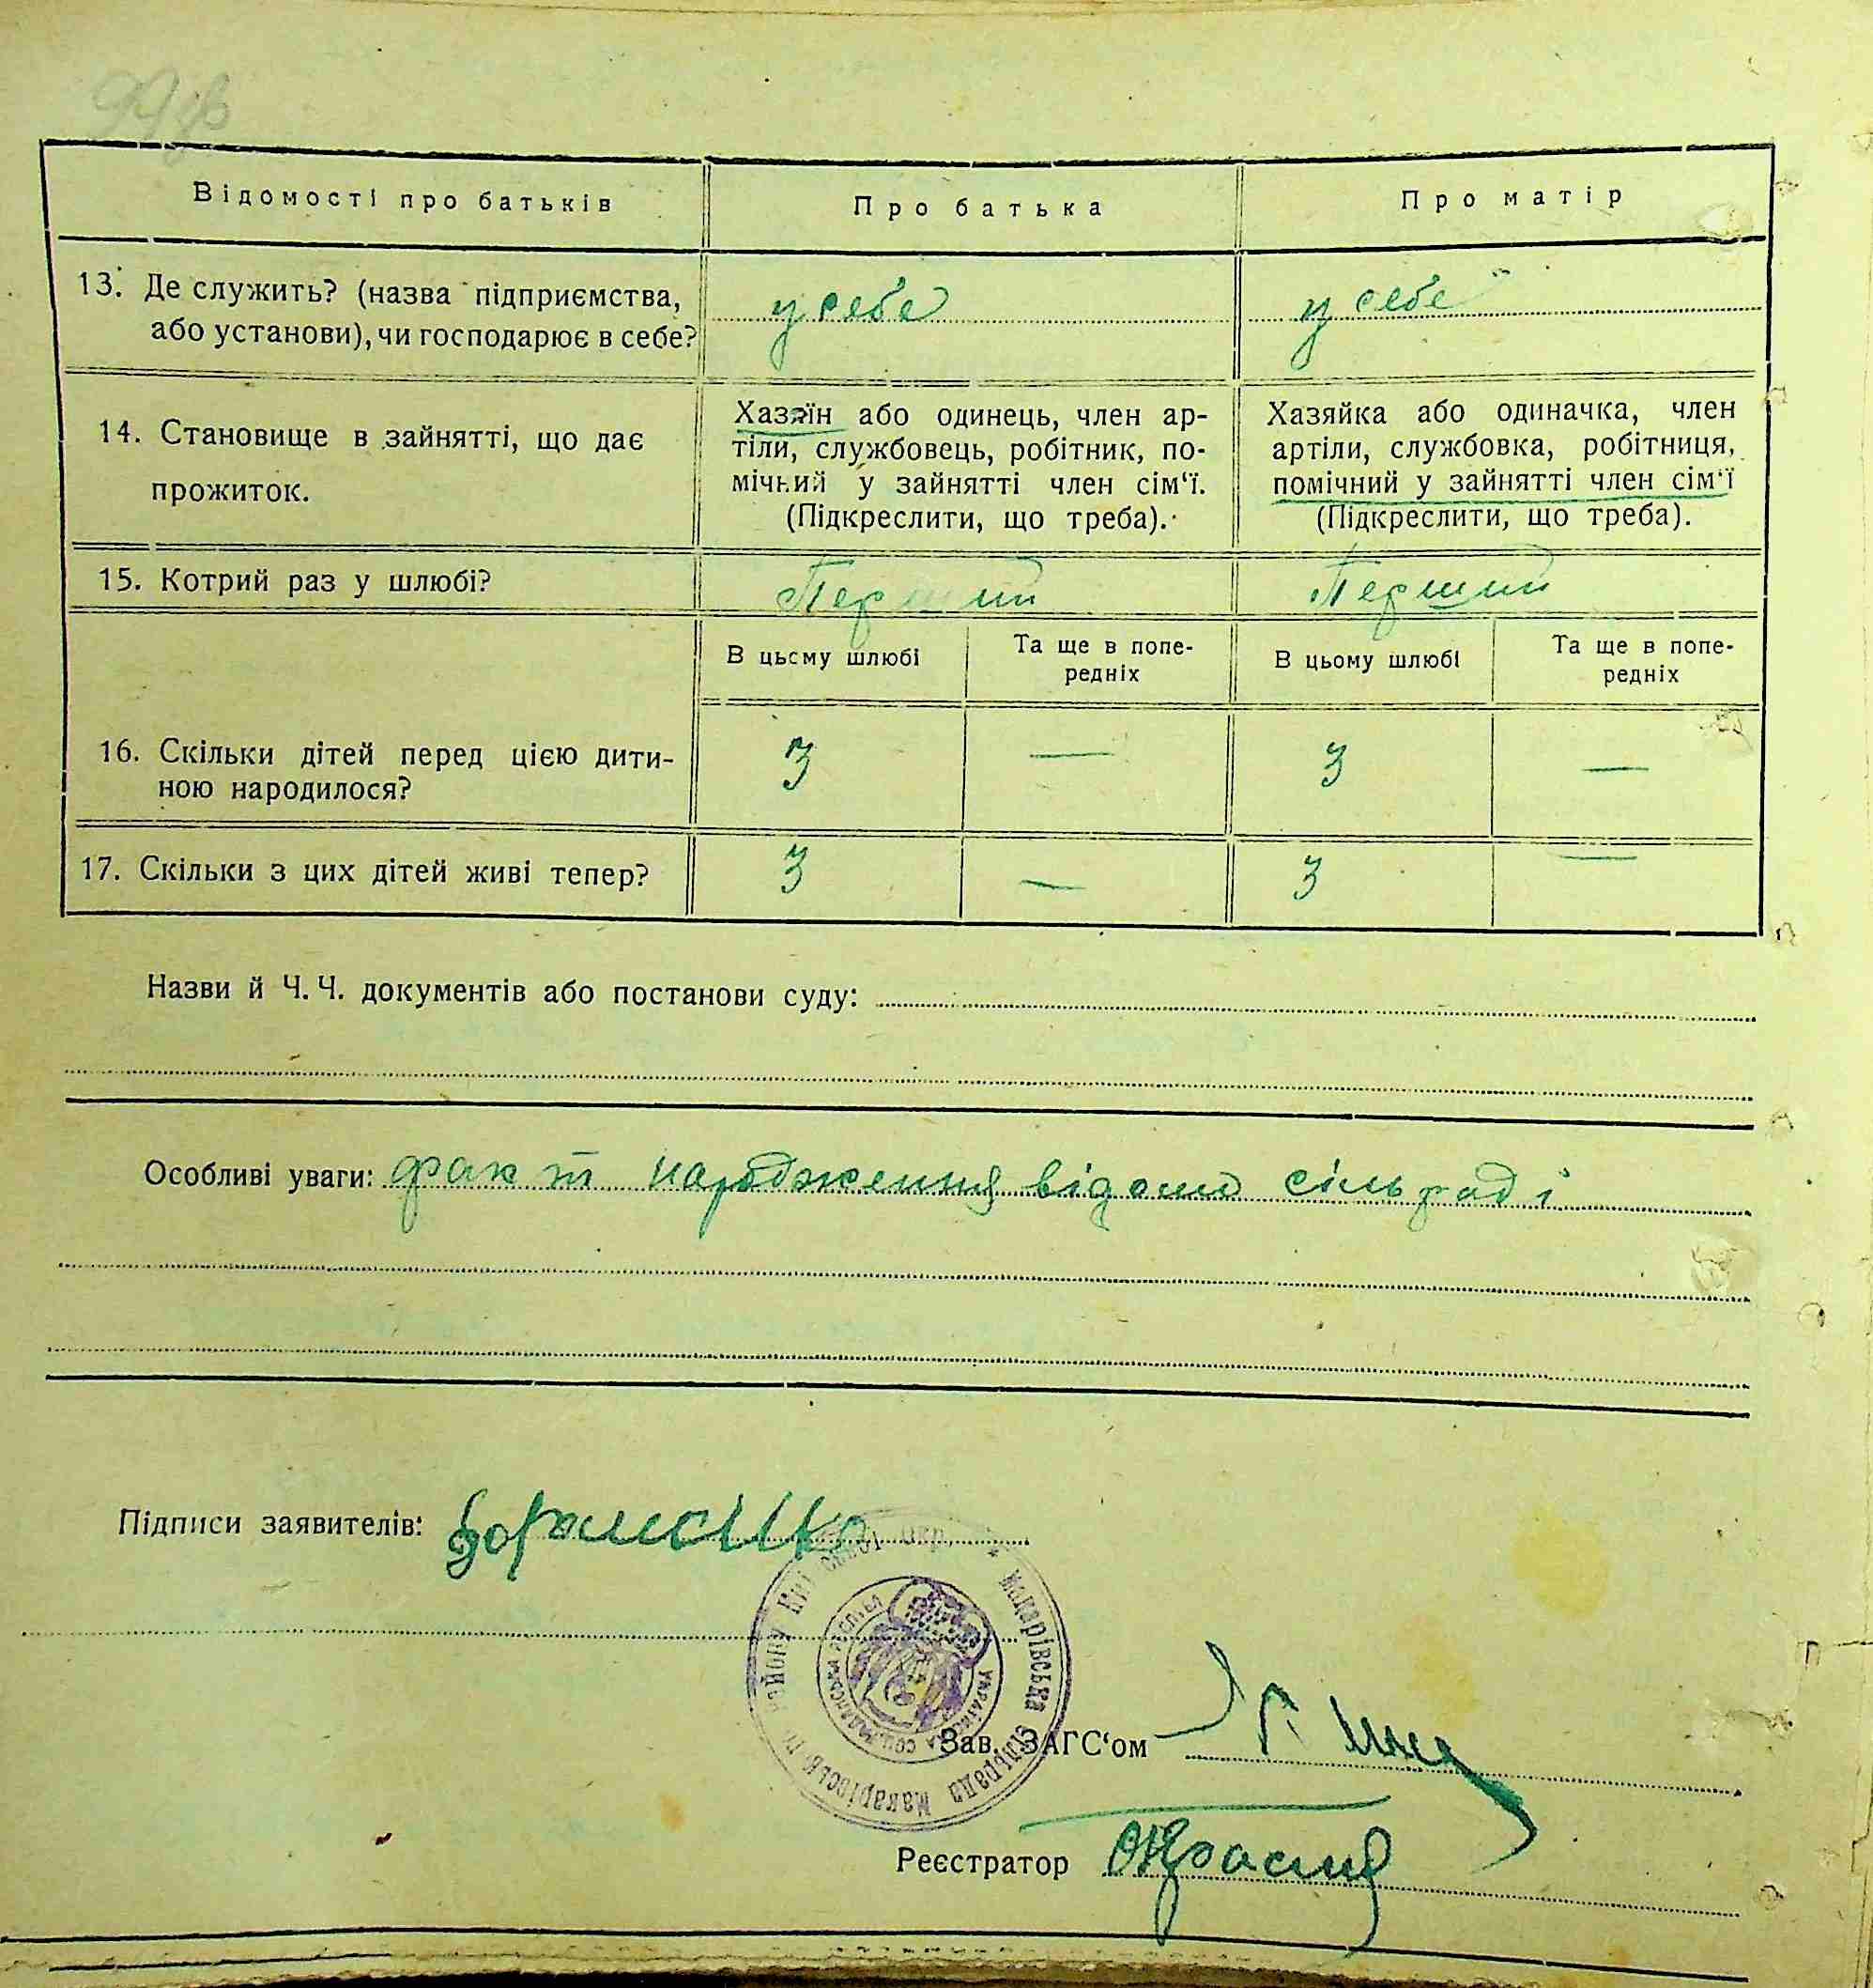 Відомості про батьків
Про батька
Про матір
13. Де служить? (назва підприємства,
або установи), чи господарює в себе?
у себе
у себе
14. Становище в зайнятті, що дає
прожиток.
Хазяїн або одинець, член ар-
тіли, службовець, робітник, по-
мічний у зайнятті член сім'ї.
(Підкреслити, що треба).
Хазяйка або одиначка, член
артіли, службовка, робітниця,
помічний у зайнятті член сім'ї
(Підкреслити, що треба).
15. Котрий раз у шлюбі?
Перший
Перший
В цьому шлюбі
Та ще в попе-
редніх
В цьому шлюбі
Та ще в попе-
редніх
16. Скільки дітей перед цією дити-
ною народилося?
3
—
3
—
17. Скільки з цих дітей живі тепер?
3
—
3
—
Назви й Ч. Ч. документів або постанови суду:
Особливі уваги: факт народження відомо сільраді
Підписи заявителів:
Макарівська сільрада Макарівськ району
Зав. ЗАГС'ом
Реєстратор